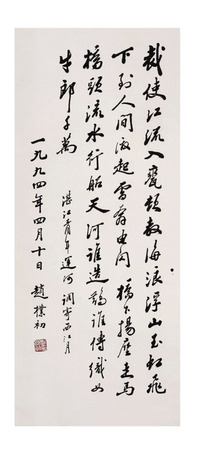 裁使江流入甕頓教海浪浮山玉虹飛
下到人間激起雷霆电闪橋下揚塵走馬
橋頭流水行船天河誰造鵲誰傳織女
牛郎千萬
湛江青年運河 調寄西江月
一九九四年四月十日 趙樸初